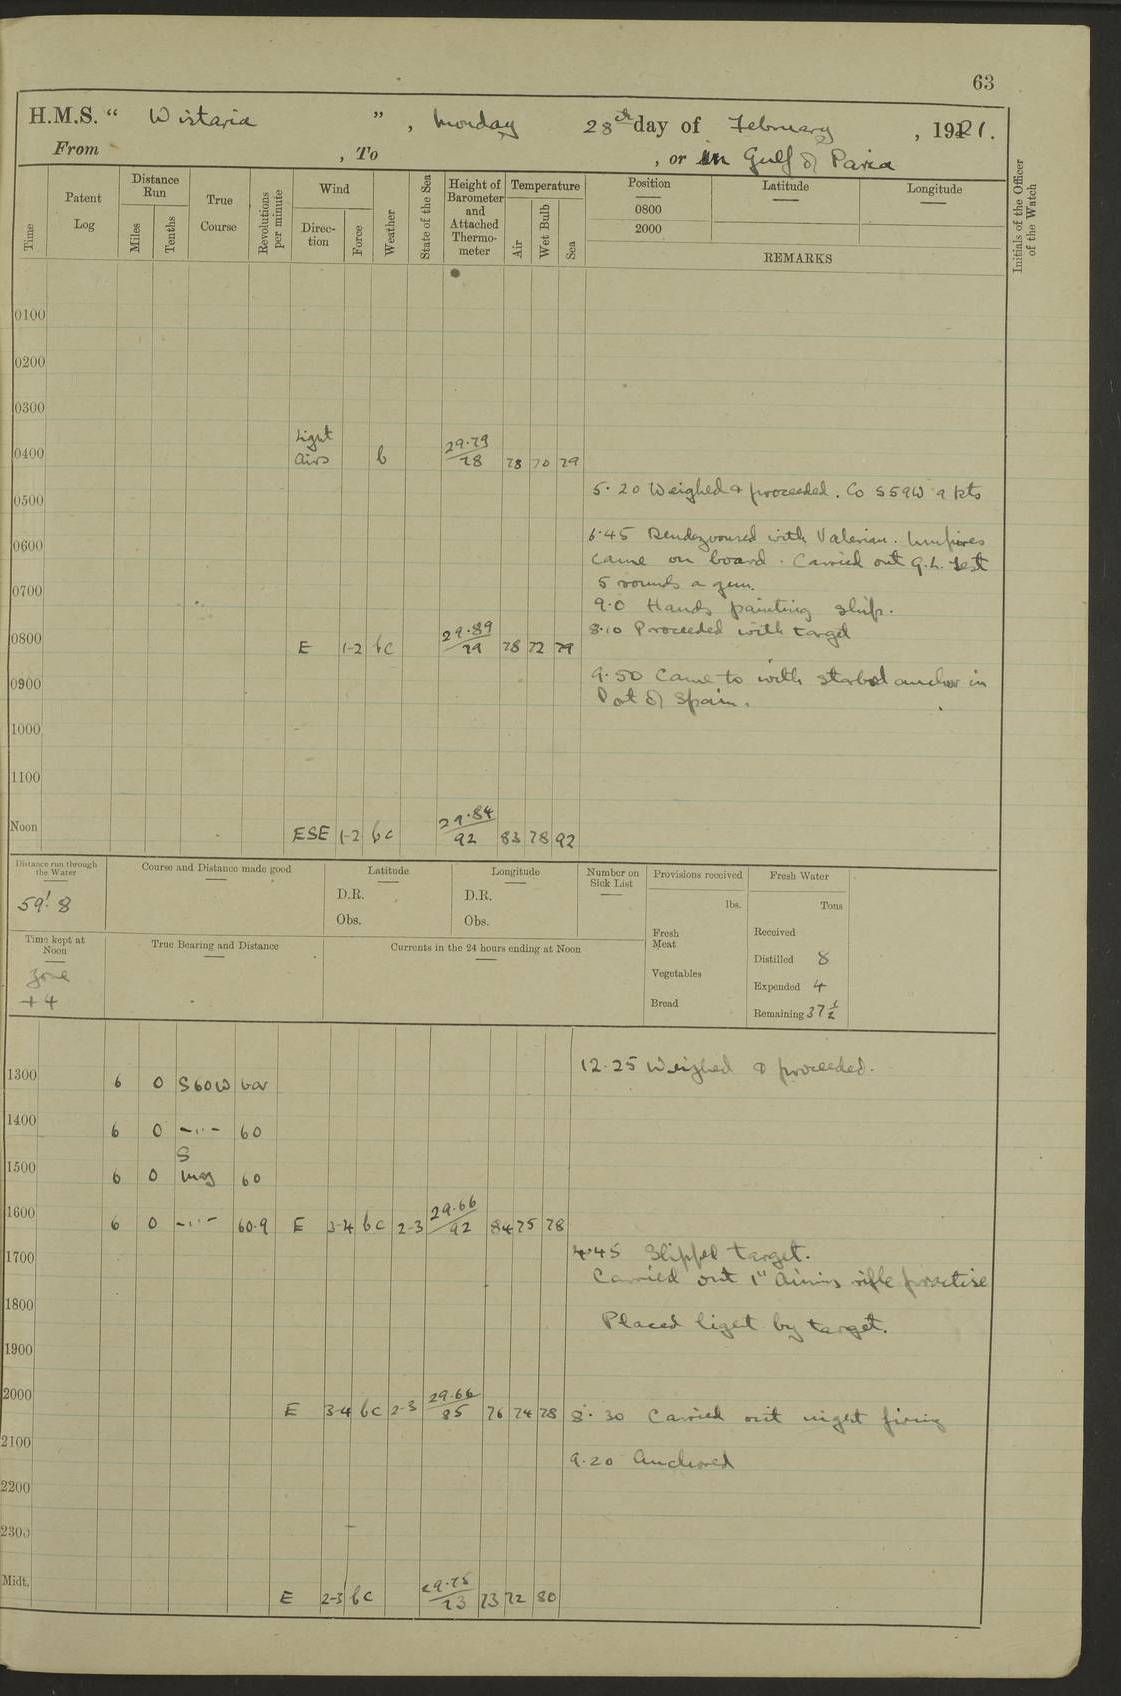 63
H.M.S. “ Wistaria ” , Monday 28th day of February , 1921.
From , To , or in Gulf of Paria
Time
Patent Log
Distance Run
Miles
Tenths
True Course
Revolutions per minute
Wind
Direc- tion
Force
Weather
State of the Sea
Height of Barometer and Attached Thermo- meter
Temperature
Air
Wet Bulb
Sea
Position Latitude Longitude
0800
2000
REMARKS
Initials of the Officer of the Watch
0100
0200
0300
Light
0400 Airs b 29.79/78 78 70 79
5.20 Weighed & proceeded. Co S59W 9 kts
0500
6.45 Rendezvoused with Valerian. Umpires
0600
came on board. Carried out G.L. test
5 rounds a gun.
0700
9.0 Hands painting ship.
8.10 Proceeded with target
0800 E 1-2 bc 29.89/79 78 72 79
9.50 Came to with starbd anchor in
0900
Pot of Spain.
1000
1100
Noon ESE 1-2 bc 29.84/92 83 78 92
Distance run through the Water
59! 8
Course and Distance made good
Latitude
D.R.
Obs.
Longitude
D.R.
Obs.
Number on Sick List
Provisions received
lbs.
Fresh Meat
Vegetables
Bread
Fresh Water
Tons
Received
Distilled 8
Expended 4
Remaining 37 1/2
Time kept at Noon
Zone
+4
True Bearing and Distance
Currents in the 24 hours ending at Noon
12.25 Weighed & proceeded.
1300 6 0 S60W var
1400 6 0 -"- 60
S
1500 6 0 mag 60
1600 6 0 -"- 60.9 E 3-4 bc 2-3 29.66/92 84 75 78
4.45 Slipped target.
1700
Carried out 1" Aiming rifle practise
1800
Placed light by target.
1900
2000 E 3-4 bc 2-3 29.66/85 76 74 78 8.30 Carried out night firing
2100
9.20 Anchored
2200
2300
Midt. E 2-3 bc 29.75/73 73 72 80